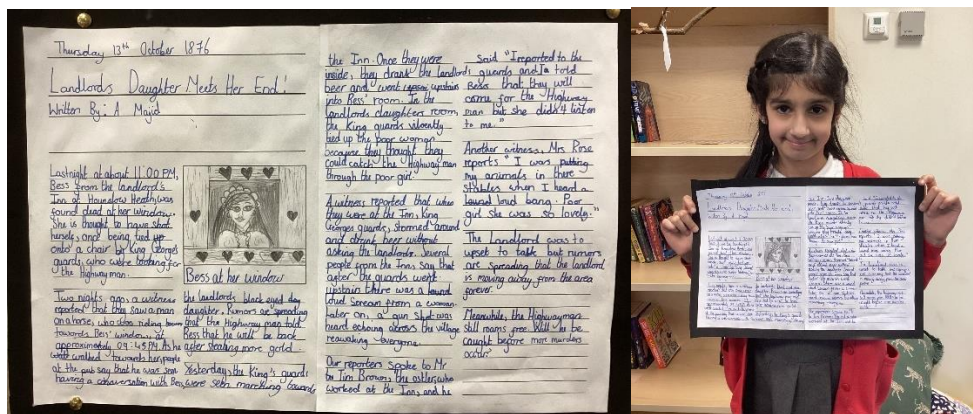 Thursday 13th October 1876
Landlords Daughter Meets Her End!
Written By: A Majid
Lastnight at about 11:00 PM,
Bess from the landlord's
Inn at Hounslow Heath, was
found dead at her window.
She is thought to have shot
herself, and being tied up
onto a chair by King George's
guards, who were looking for
the highwayman.
Bess at her window
Two nights ago, a witness
reported that they saw a man
on a horse, who was riding
towards Bess' window at
approximately 09:45 PM. As he
walked towards her, people
at the pub say that he was seen
having a conversation with Bess,
the landlords black eyed
daughter. Rumors are spreading
that the Highway man told
Bess that he will be back
after stealing more gold.
Yesterday, the King's guards
were seen marching towards
the Inn. Once they were
inside, they drank the landlords
beer and went upstairs
into Bess' room. In the
landlords daughters room,
the King guards
tied up the poor woman
because they thought they
could catch the Highwayman
through the poor girl.
A witness reported that when
they were at the Inn, King
Georges guards, stormed around
and drink beer without
asking the landlords. Several
people from the Inn, say that
after the guards went
upstairs there was a
loud scream from a woman.
Later on, a gun shot was
heard echoing across the village
reawaking everyone.
Our reporters spoke to Mr
Tim Brown, the ostler, who
worked at the Inn, and he
said "I reported to the
guards and I told
Bess that they will
come for the Highway
man but she didn't listen
to me."
Another witness, Mrs Rose
reports "I was putting
my animals in there
stables when I heard a
loud bang. Poor
girl she was so lovely."
The Landlord was to
upset to talk but rumors
are spreading that the landlord
is moving away from the area
forever.
Meanwhile, the Highwayman
still roams free. Will he be
caught before more murders
occur?